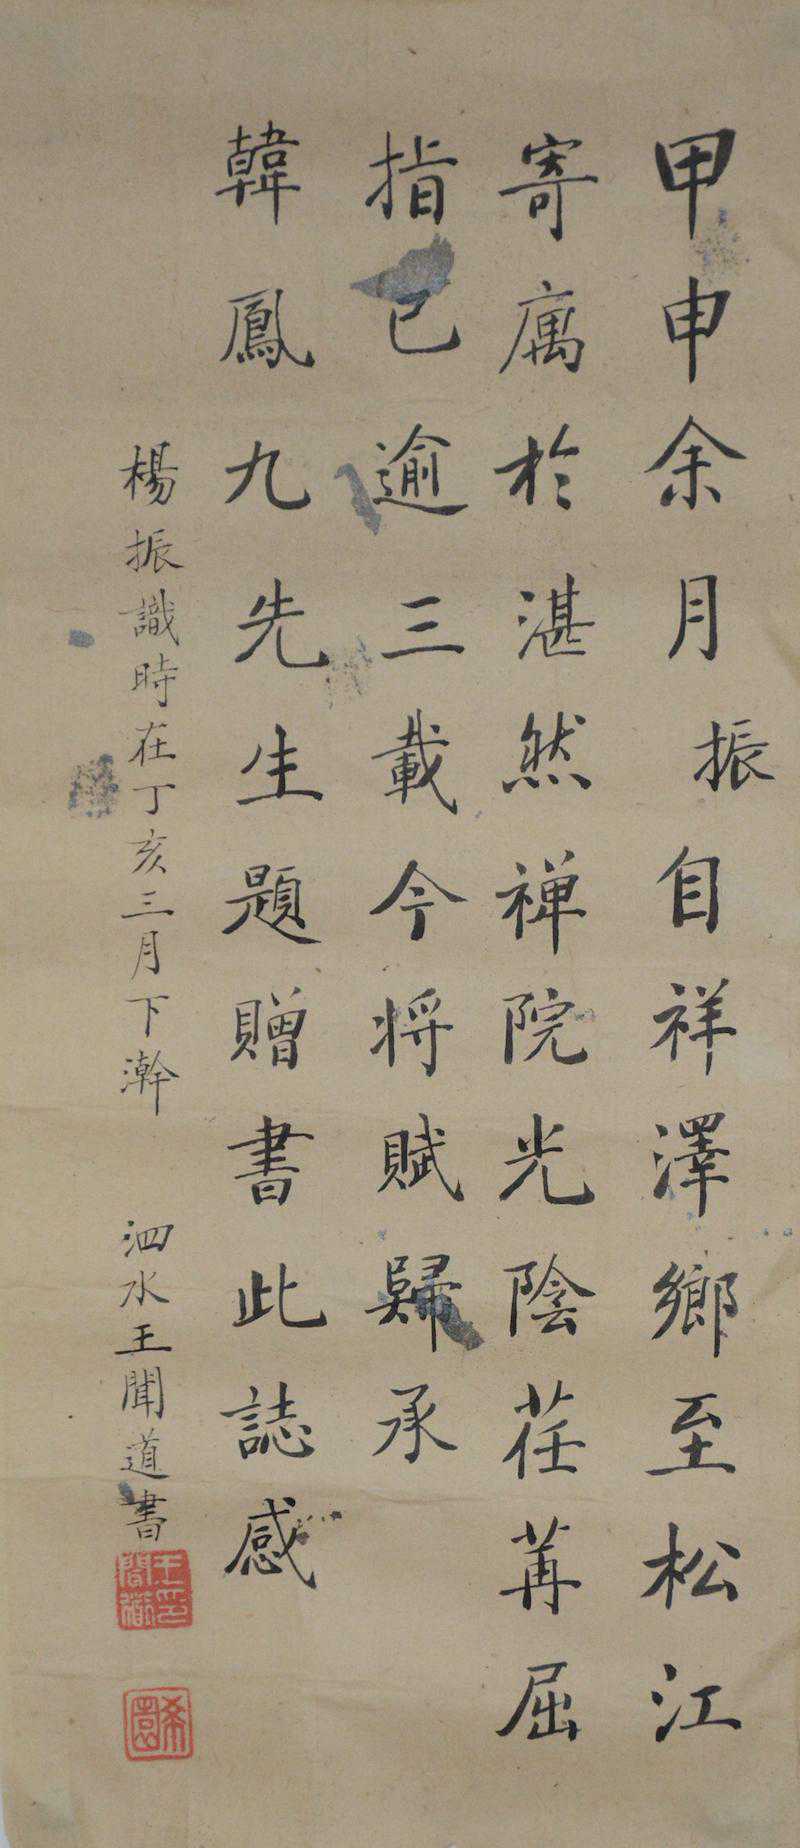 甲申余月振自祥澤鄉至松江
寄寓於湛然禅院光陰荏苒屈
指已逾三載今将賦歸承
韓鳳九先生題贈書此誌感
楊振識時在丁亥三月下澣 泗水王聞道書